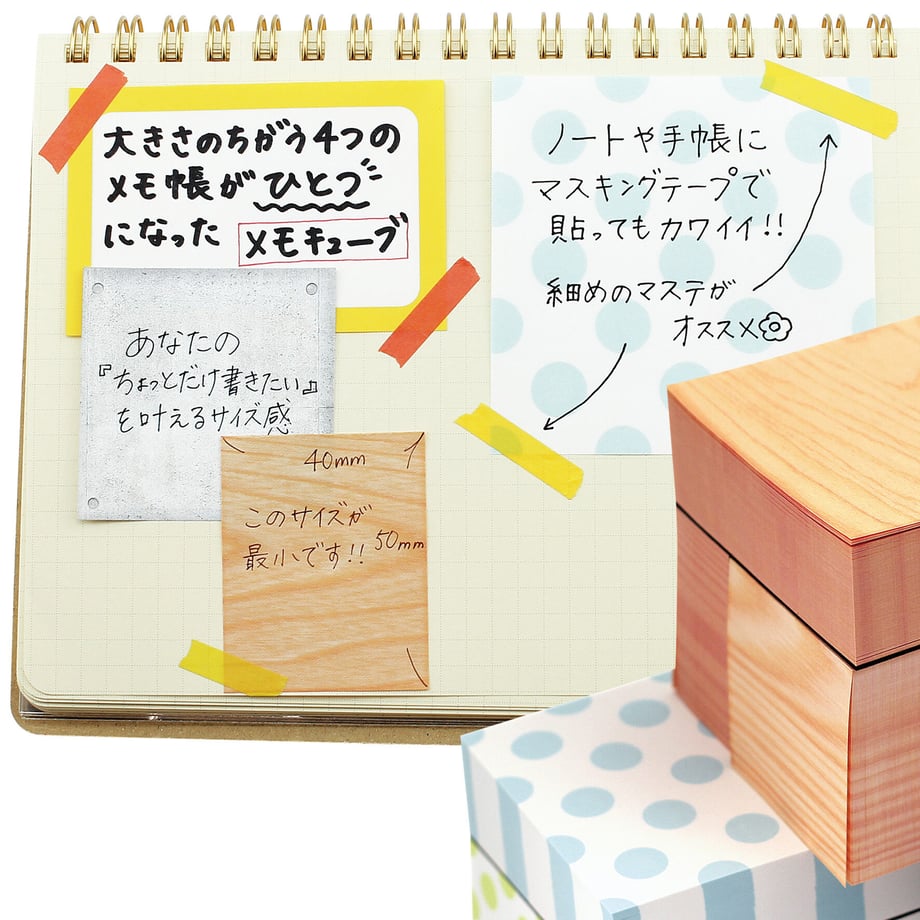 大きさのちがう4つの
メモ帳がひとつ
になった メモキューブ
ノートや手帳に
マスキングテープで
貼ってもカワイイ!!
細めのマステが
オススメ
あなたの
『ちょっとだけ書きたい』
を叶えるサイズ感
40mm
このサイズが
最小です!! 50mm